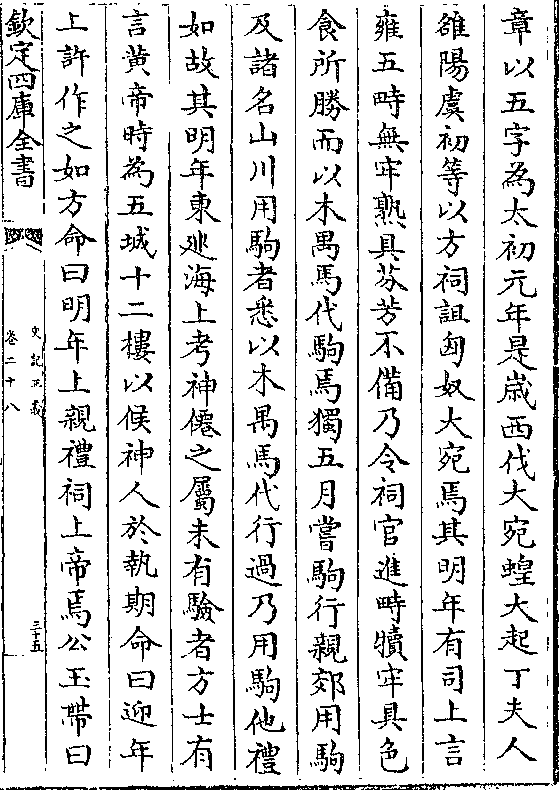 章以五字為太初元年是歳西伐大宛蝗大起丁夫人
雒陽虞初等以方祠詛匈奴大宛焉其明年有司上言
雍五畤無牢熟具芬芳不備乃令祠官進畤犢牢具色
食所勝而以木禺馬代駒焉獨五月嘗駒行親郊用駒
及諸名山川用駒者悉以木禺馬代行過乃用駒他禮
如故其明年東廵海上考神僊之屬未有驗者方士有
言黄帝時為五城十二樓以候神人於執期命曰迎年
上許作之如方命曰明年上親禮祠上帝焉公玉帶曰
欽定四庫全書
史記正義
卷二十八
三十五